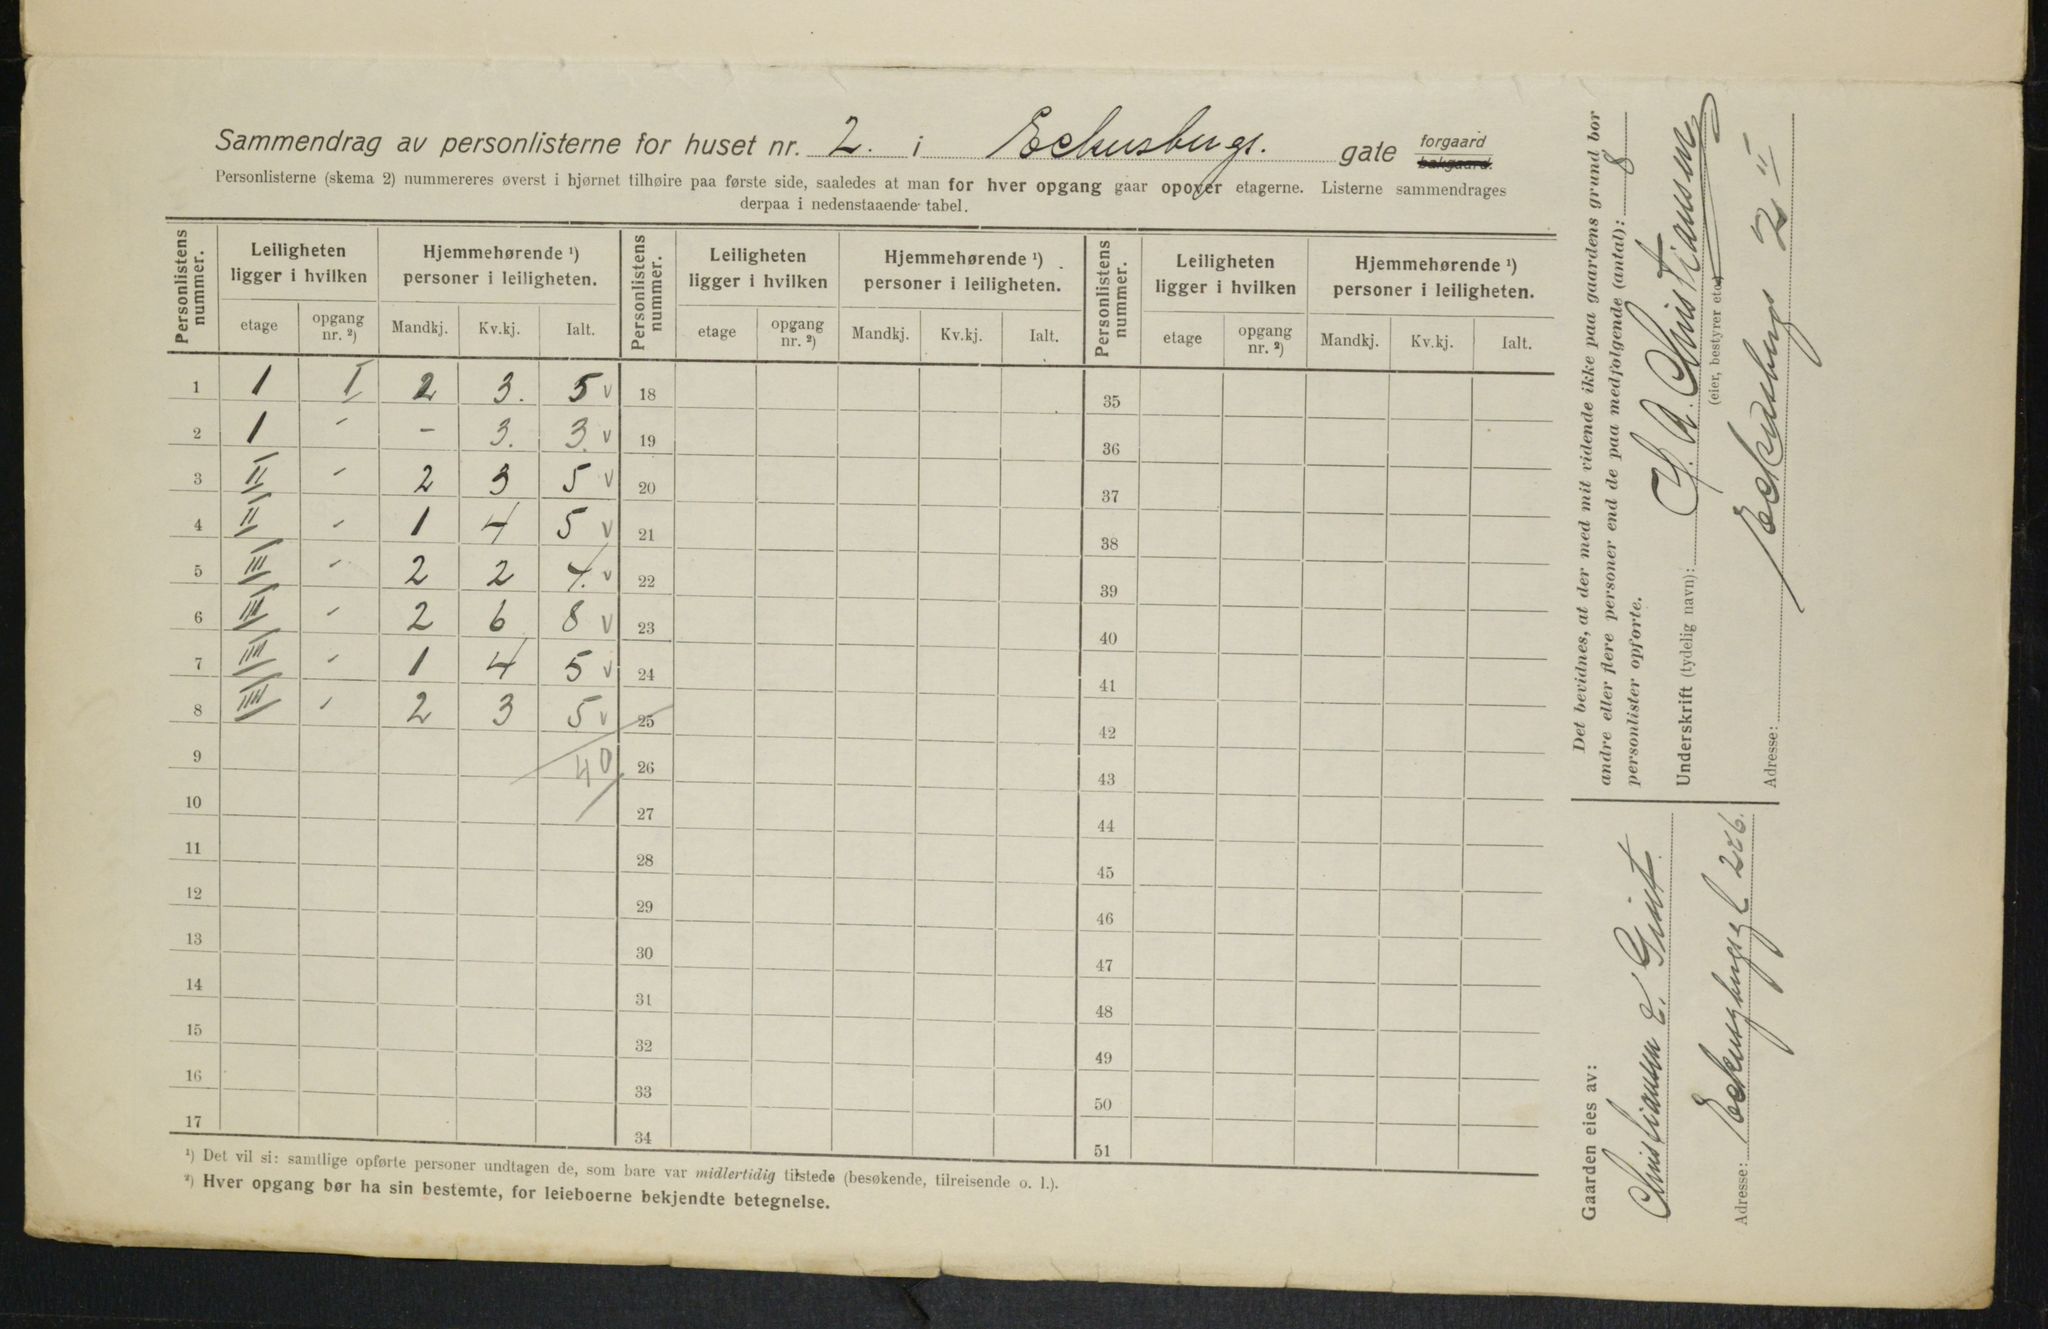 Sammendrag av personlisterne for huset nr. 2. i Eckersbergs. gate forgaard bakgaard.
Personlisterne (skema 2) nummereres øverst i hjørnet tilhøire paa første side, saaledes at man for hver opgang gaar opover etagerne. Listerne sammendrages
derpaa i nedenstaaende tabel.
Personlistens nummer. Leiligheten ligger i hvilken Hjemmehørende ¹) personer i leiligheten. Personlistens nummer. Leiligheten ligger i hvilken Hjemmehørende ¹) personer i leiligheten. Personlistens nummer. Leiligheten ligger i hvilken Hjemmehørende ¹) personer i leiligheten.
etage opgang nr. ²) Mandkj. Kv.kj. Ialt. etage opgang nr. ²) Mandkj. Kv.kj. Ialt. etage opgang nr. ²) Mandkj. Kv.kj. Ialt.
1 1 I 2 3. 5 v 18 35
2 1 " - 3. 3. v 19 36
3 II " 2 3 5 v 20 37
4 II " 1 4 5 v 21 38
5 III " 2 2 4. v 22 39
6 III " 2 6 8 v 23 40
7 IIII " 1 4 5 v 24 41
8 IIII " 2 3 5 v 25 42
9 40 26 43
10 27 44
11 28 45
12 29 46
13 30 47
14 31 48
15 32 49
16 33 50
17 34 51
¹) Det vil si: samtlige opførte personer undtagen de, som bare var midlertidig tilstede (besøkende, tilreisende o. l.).
²) Hver opgang bør ha sin bestemte, for leieboerne bekjendte betegnelse.
Det bevidnes, at der med mit vidende ikke paa gaardens grund bor
andre eller flere personer end de paa medfølgende (antal): 8
personlister opførte.
Underskrift (tydelig navn): Christiansen
(eier, bestyrer etc.)
Adresse: Eckersbergs 2 III
Gaarden eies av:
Christiansen &
Adresse: Eckersbergsgt